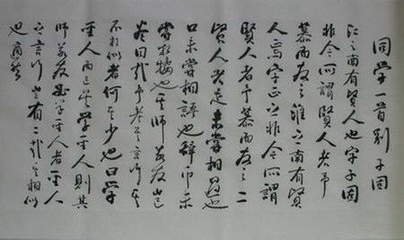 同學一首別子固
江之南有賢人焉字子固
非今所謂賢人者予
慕而友之淮之南有賢
人焉字正之非今所謂
賢人者予慕而友之二
賢人者足未嘗相過也
口未嘗相語也辭币未
嘗相接也其師若友豈
盡同哉予考其言行其
不相似者何其少也曰學
聖人而已矣學聖人則其
師若友必學聖人者聖人
之言行豈有二哉其相似
也適然